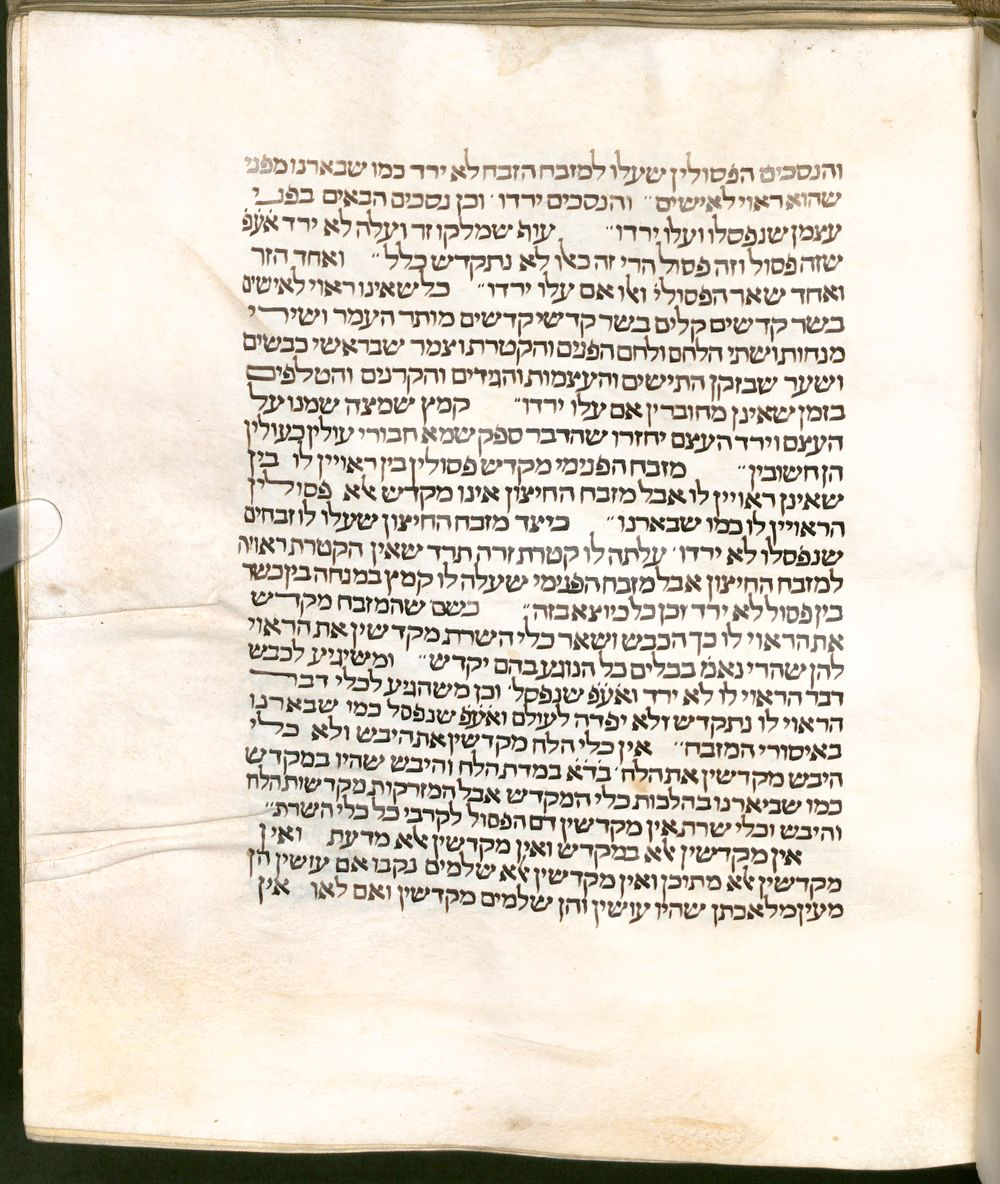 והנסכים הפסולין שעלו למזבח הזבח לא ירד כמו שבארנו מפני
שהוא ראוי לאישים״ והנסכים ירדו׳ וכן נסכים הבאים בפני
עצמן שנפסלו ועלו ירדו״ עוף שמלקו זר ועלה לא ירד אעפ
שזה פסול וזה פסול הרי זה כאלו לא נתקדש כלל״ ואחד הזר
ואחד שאר הפסולי׳ אם עלו ירדו״ כל שאינו ראוי לאישים
בשר קדשים קלים בשר קדשי קדשים מותר העמר ושירי
מנחות ושתי הלחם ולחם הפנים והקטרת וצמר שבראשי כבשים
ושער שבזקן התישים והעצמות והגידים והקרנים והטלפים
בזמן שאינן מחוברין אם עלו ירדו״ קמץ שמצה שמנו על
העצם וירד העצם יחזרו שהדבר ספק שמא חבורי עולין כעולין
הן חשובין״ מזבח הפנימי מקדש פסולין בין ראויין לו בין
שאינן ראויין לו אבל מזבח החיצון אינו מקדש אלא פסולין
הראויין לו כמו שבארנו״ כיצד מזבח החיצון שעלו לו זבחים
שנפסלו לא ירדו׳ עלתה לו קטרת זרה תרד שאין הקטרת ראויה
למזבח החיצון אבל מזבח הפנימי שעלה לו קמץ במנחה בין כשר
בין פסול לא ירד וכן כל כיוצא בזה״ כשם שהמזבח מקדש
את הראוי לו כך הכבש ושאר כלי השרת מקדשין את הראוי
להן שהרי נאמ׳ בכלים כל הנוגע בהם יקדש״ ומשיגיע לכבש
דבר הראוי לו לא ירד ואעפ שנפסל׳ וכן משהגיע לכלי דבר
הראוי לו נתקדש ולא יפדה לעולם ואעפ שנפסל כמו שבארנו
באיסורי המזבח״ אין כלי הלח מקדשין את היבש ולא כלי
היבש מקדשין את הלח׳ בדא במדת הלח והיבש שהיו במקדש
כמו שביארנו בהלכות כלי המקדש אבל המזרקות מקדשות הלח
והיבש וכלי שרת אין מקדשין דם הפסול לקרבי כל כלי השרת״
אין מקדשין אלא במקדש ואין מקדשין אלא מדעת ואין
מקדשין אלא מתוכן ואין מקדשין אלא שלמים נקבו אם עושין הן
מעין מלאכתן שהיו עושין והן שלמים מקדשין ואם לאו אין